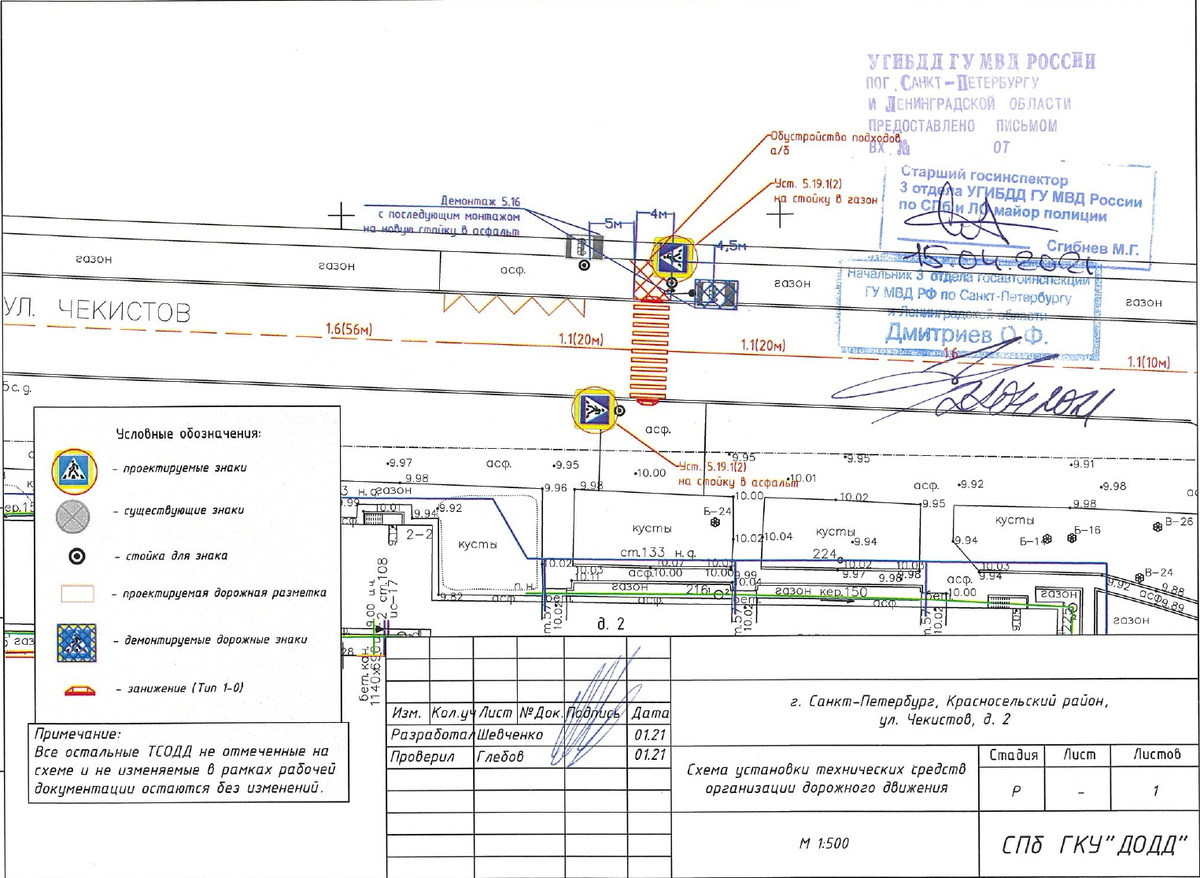 УГИБДД ГУ МВД РОССИИ
ПО Г. САНКТ-ПЕТЕРБУРГУ
И ЛЕНИНГРАДСКОЙ ОБЛАСТИ
ПРЕДОСТАВЛЕНО ПИСЬМОМ
ВХ № ОТ
Обустройство подходов
а/б
Старший госинспектор
3 отдела УГИБДД ГУ МВД России
по СПб и ЛО майор полиции
Сгибнев М.Г.
15.04.2021
Уст. 5.19.1(2)
на стойку в газон
Демонтаж 5.16
с последующим монтажом
на новую стойку в асфальт
5м
4м
4,5м
Начальник 3 отдела госавтоинспекции
ГУ МВД РФ по Санкт-Петербургу
и Ленинградской области
Дмитриев О.Ф.
21.04.2021
газон
газон
асф.
газон
газон
УЛ. ЧЕКИСТОВ
1.6(56м)
1.1(20м)
1.1(20м)
1.6
1.1(10м)
асф.
Уст. 5.19.1(2)
на стойку в асфальт
9.97
9.98
асф.
9.95
10.00
9.95
10.01
9.95
9.91
газон
10.01
9.94
9.92
9.96
9.98
10.00
10.02
9.95
асф.
9.92
9.98
асф.
2-2
кусты
кусты
Б-24
10.02
10.04
кусты
9.94
кусты
9.94
Б-14
Б-16
В-26
В-24
ст.133 н.д.
224
10.02
10.03
10.11
асф.
10.07
10.02
10.00
10.00
9.99
10.04
10.02
10.03
9.97
9.98
9.98
асф.
9.94
10.00
9.92
9.94
9.95
9.89
п.н.
9.82
асф.
газон
216
асф.
бет.
газон
кер.150
асф.
бет.
газон
газон
10.02
10.02
10.02
д. 2
ст.108
ис-17
бет.кан.
Условные обозначения:
- проектируемые знаки
- существующие знаки
- стойка для знака
- проектируемая дорожная разметка
- демонтируемые дорожные знаки
- занижение (Тип 1-0)
Примечание:
Все остальные ТСОДД не отмеченные на
схеме и не изменяемые в рамках рабочей
документации остаются без изменений.
Изм. Кол.уч Лист №Док. Подпись Дата
Разработал Шевченко 01.21
Проверил Глебов 01.21
г. Санкт-Петербург, Красносельский район,
ул. Чекистов, д. 2
Схема установки технических средств
организации дорожного движения
Стадия Лист Листов
Р - 1
М 1:500
СПб ГКУ"ДОДД"